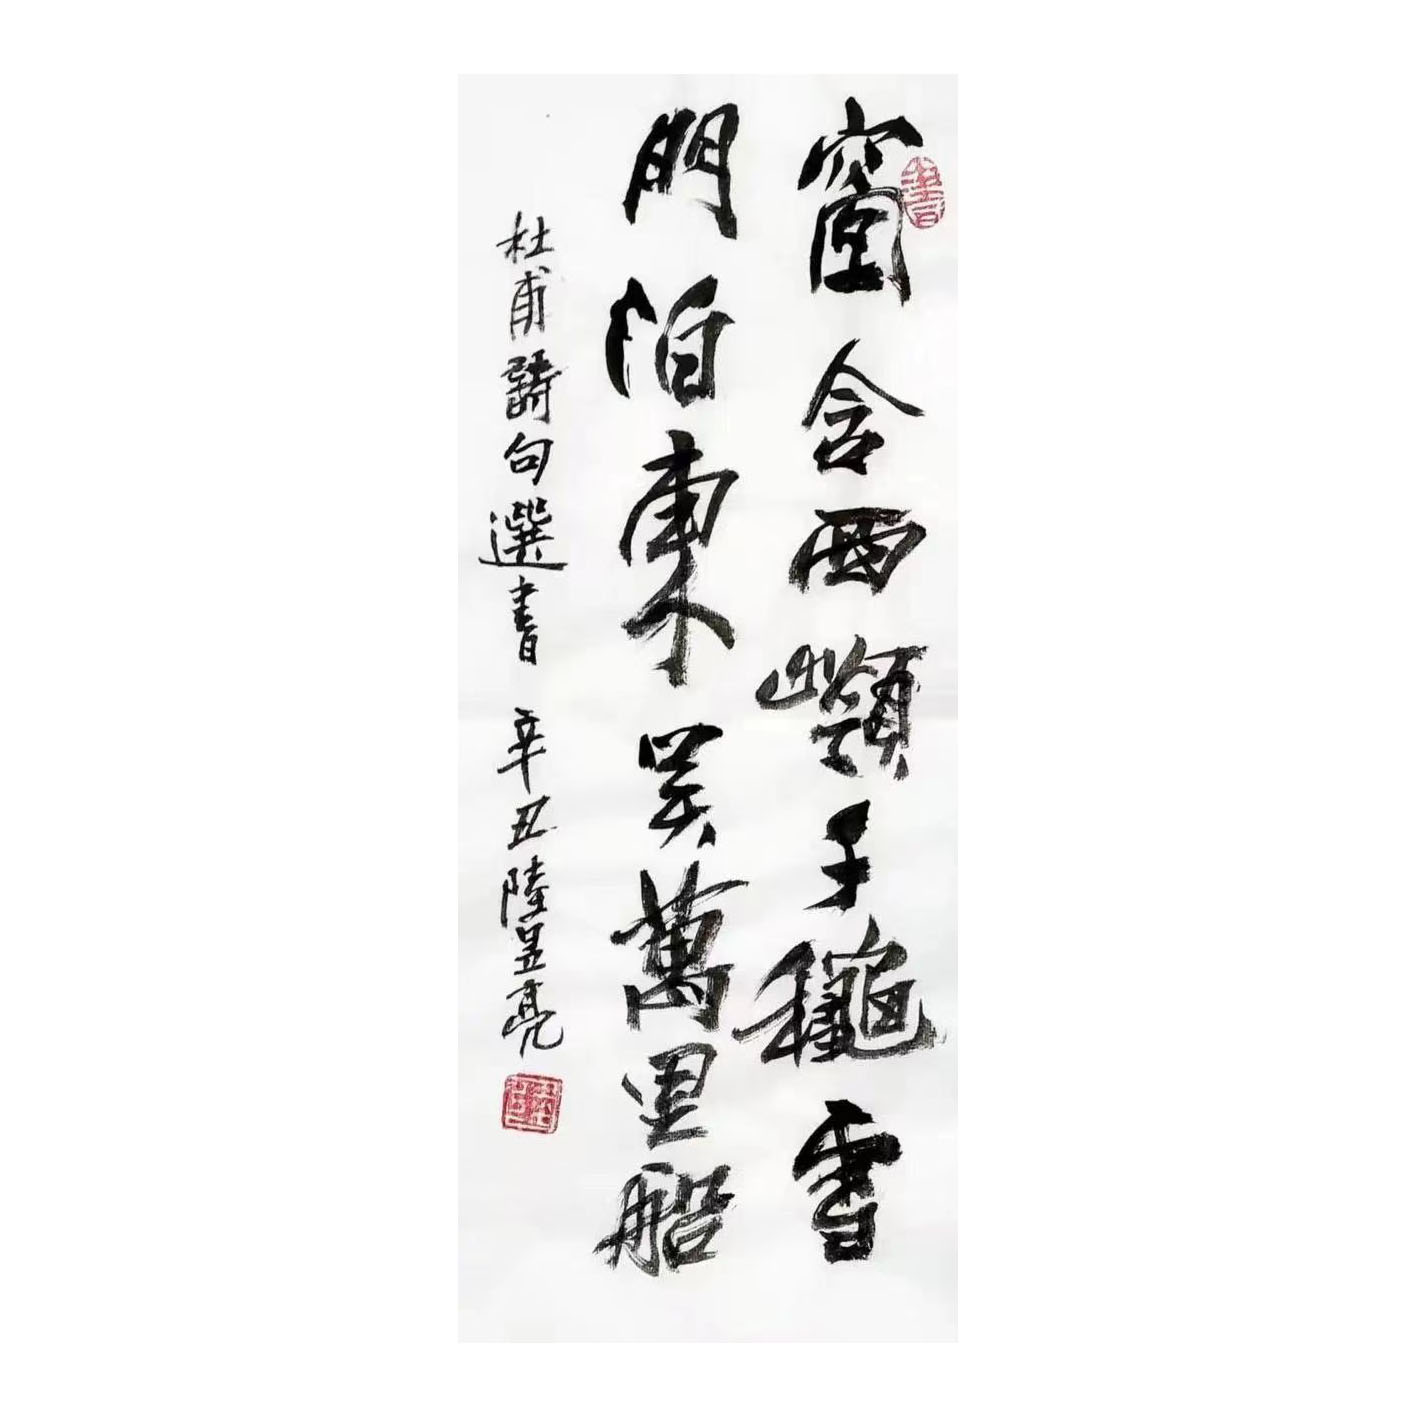 窗含西嶺千龝雪
門泊東吴萬里船
杜甫詩句選書 辛丑陸昱亮